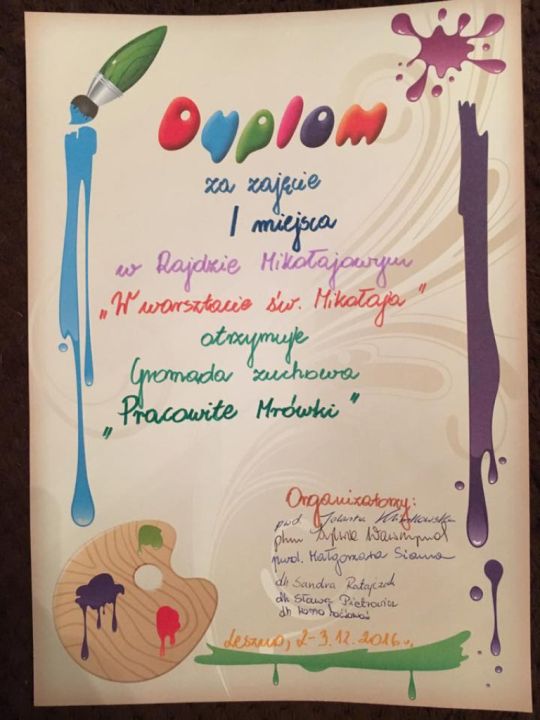 Dyplom
za zajęcie
I miejsca
w Rajdzie Mikołajowym
„W warsztacie św. Mikołaja"
otrzymuje
Gromada zuchowa
„Pracowite Mrówki"
Organizatorzy:
pwd. Jolanta
phm
pwd. Małgorzata
dh Sandra Ratajczak
dh Sława Pietrowicz
dh
Leszno, 2-3.12.2016 r.